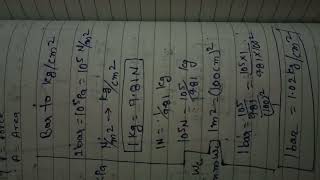 A Area
Bar to kg/cm²
1bar = 10⁵Pa = 10⁵ N/m²
N/m² → kg/cm²
1kg = 9.81N
1N = 1/9.81 kg
10⁵N = 10⁵/9.81 kg
1m² = (100cm)²
1bar = 10⁵/9.81/(100)² = 10⁵×1/9.81×100²
1bar = 1.02 kg/cm²